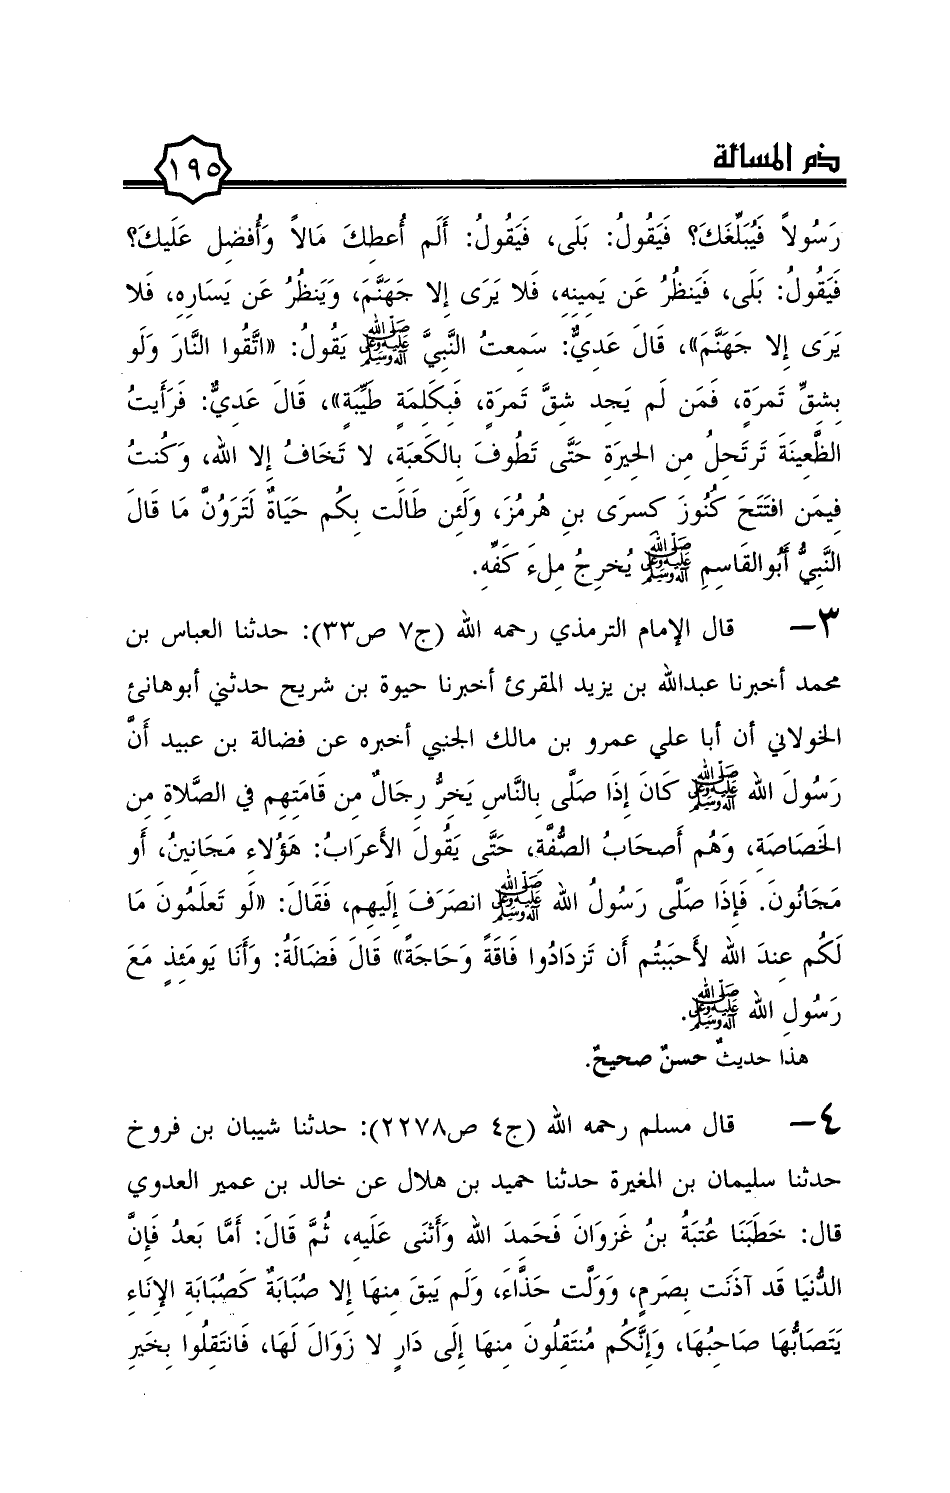 ذم المسالة
١٩٥
رَسُولاً فَيُبَلِّغَكَ؟ فَيَقُولُ: بَلَى، فَيَقُولُ: أَلَم أُعطِكَ مَالاً وَأُفضِل عَلَيكَ؟
فَيَقُولُ: بَلَى، فَيَنظُرُ عَن يَمِينِهِ، فَلا يَرَى إلا جَهَنَّمَ، وَيَنظُرُ عَن يَسَارِهِ، فَلا
يَرَى إلا جَهَنَّمَ»، قَالَ عَدِيٌّ: سَمعتُ النَّبِيَّ ﷺ يَقُولُ: «اتَّقُوا النَّارَ وَلَو
بِشِقِّ تَمرَةٍ، فَمَن لَم يَجِد شقَّ تَمرَةٍ، فَبِكَلِمَةٍ طَيِّبَةٍ»، قَالَ عَدِيٌّ: فَرَأَيتُ
الظَّعِينَةَ تَرتَحلُ مِن الحِيرَةِ حَتَّى تَطُوفَ بِالكَعبَةِ، لا تَخَافُ إلا الله، وَكُنتُ
فِيمَن افتَتَحَ كُنُوزَ كسرَى بنِ هُرمُزَ، وَلَئِن طَالَت بِكُم حَيَاةٌ لَتَرَوُنَّ مَا قَالَ
النَّبِيُّ أَبُوالقَاسِمِ ﷺ يُخرِجُ مِلءَ كَفِّهِ.
٣– قال الإمام الترمذي رحمه الله (ج٧ ص٣٣): حدثنا العباس بن
محمد أخبرنا عبدالله بن يزيد المقرئ أخبرنا حيوة بن شريح حدثني أبوهانئ
الخولاني أن أبا علي عمرو بن مالك الجنبي أخبره عن فضالة بن عبيد أَنَّ
رَسُولَ الله ﷺ كَانَ إِذَا صَلَّى بِالنَّاسِ يَخِرُّ رِجَالٌ مِن قَامَتِهِم فِي الصَّلاةِ مِن
الخَصَاصَةِ، وَهُم أَصحَابُ الصُّفَّةِ، حَتَّى يَقُولَ الأَعرَابُ: هَؤُلاءِ مَجَانِينُ، أَو
مَجَانُونَ. فَإِذَا صَلَّى رَسُولُ الله ﷺ انصَرَفَ إِلَيهِم، فَقَالَ: «لَو تَعلَمُونَ مَا
لَكُم عِندَ الله لأَحبَبتُم أَن تَزدَادُوا فَاقَةً وَحَاجَةً» قَالَ فَضَالَةُ: وَأَنَا يَومَئِذٍ مَعَ
رَسُولِ الله ﷺ.
هذا حديثٌ حسنٌ صحيحٌ.
٤– قال مسلم رحمه الله (ج٤ ص٢٢٧٨): حدثنا شيبان بن فروخ
حدثنا سليمان بن المغيرة حدثنا حميد بن هلال عن خالد بن عمير العدوي
قال: خَطَبَنَا عُتبَةُ بنُ غَزوَانَ فَحَمِدَ الله وَأَثنَى عَلَيهِ، ثُمَّ قَالَ: أَمَّا بَعدُ فَإِنَّ
الدُّنيَا قَد آذَنَت بِصَرمٍ، وَوَلَّت حَذَّاءَ، وَلَم يَبقَ مِنهَا إلا صُبَابَةٌ كَصُبَابَةِ الإِنَاءِ
يَتَصَابُّهَا صَاحِبُهَا، وَإِنَّكُم مُنتَقِلُونَ مِنهَا إِلَى دَارٍ لا زَوَالَ لَهَا، فَانتَقِلُوا بِخَيرِ